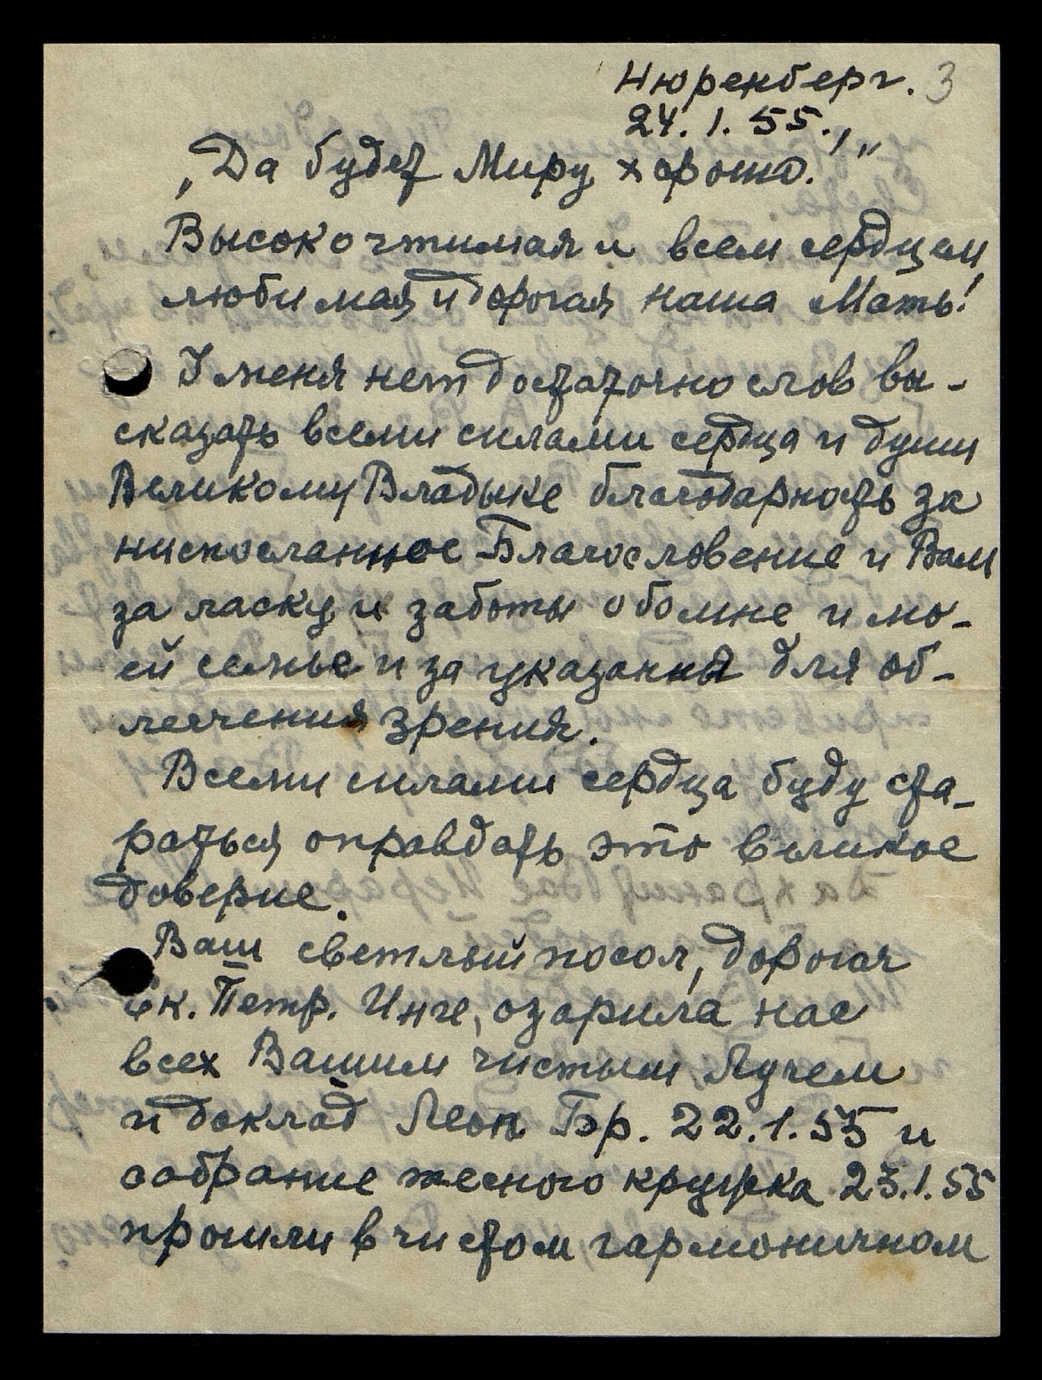 Нюренберг. 3
24. 1. 55.,
„Да будет Миру хорошо."
Высокочтимая и всем сердцем
любимая и дорогая наша Мать!
У меня нет достаточно слов вы-
сказать всеми силами сердца и души
Великому Владыке благодарность за
ниспосланное Благословение и Вам
за ласку и заботы обо мне и мо-
ей семье и за указания для об-
легчения зрения.
Всеми силами сердца буду ста-
раться оправдать это великое
доверие.
Ваш светлый посол, дорогая
Ек. Петр. Инге, озарила нас
всех Вашим чистым Лучем
и доклад Леон. Бр. 22.1.55 и
собрание тесного кружка 23.1.55
прошли в чистом гармоничном